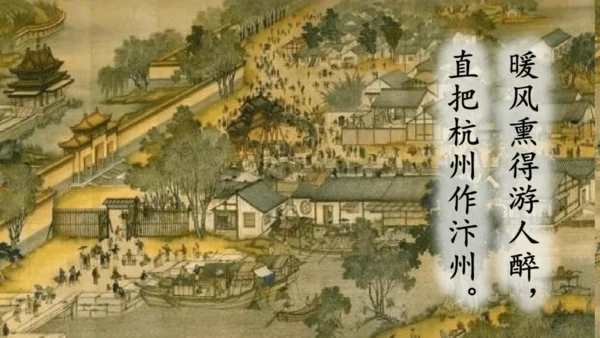 暖风熏得游人醉，
直把杭州作汴州。